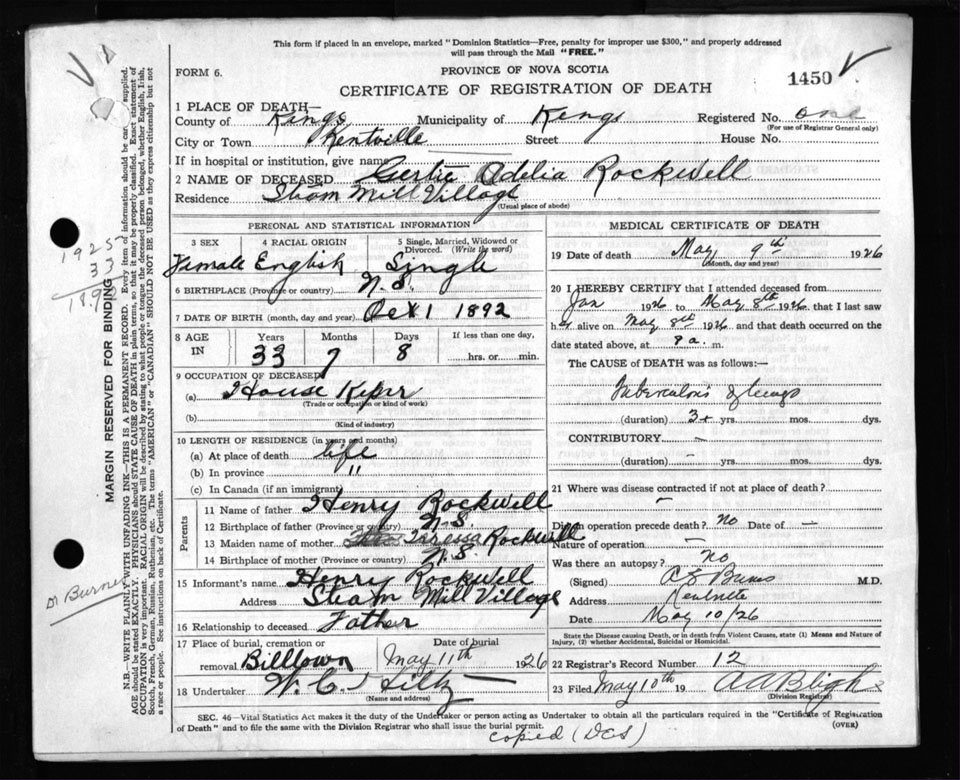 This form if placed in an envelope, marked "Dominion Statistics—Free, penalty for improper use $300," and properly addressed
will pass through the Mail "FREE."
FORM 6.
PROVINCE OF NOVA SCOTIA
1459
CERTIFICATE OF REGISTRATION OF DEATH
1 PLACE OF DEATH—
County of Kings Municipality of Kings Registered No. one
(For use of Registrar General only)
City or Town Kentville Street House No.
If in hospital or institution, give name
2 NAME OF DECEASED Gertie Adelia Rockwell
Residence Steam Mill Village
(Usual place of abode)
PERSONAL AND STATISTICAL INFORMATION
3 SEX 4 RACIAL ORIGIN 5 Single, Married, Widowed or Divorced (Write the word)
Female English Single
6 BIRTHPLACE (Province or country) N.S.
7 DATE OF BIRTH (month, day and year) Oct 1 1892
8 AGE IN Years Months Days If less than one day,
33 7 8 hrs. or min.
9 OCCUPATION OF DECEASED
(a) House Keper
(Trade or occupation or kind of work)
(b)
(Kind of industry)
10 LENGTH OF RESIDENCE (in years and months)
(a) At place of death life
(b) In province "
(c) In Canada (if an immigrant)
Parents
11 Name of father Henry Rockwell
12 Birthplace of father (Province or country) N.S.
13 Maiden name of mother Rockwell
14 Birthplace of mother (Province or country) N.S.
15 Informant's name Henry Rockwell
Address Steam Mill Village
16 Relationship to deceased Father
17 Place of burial, cremation or removal Billtown
Date of burial May 11th 1926
18 Undertaker W. C.
(Name and address)
MEDICAL CERTIFICATE OF DEATH
19 Date of death May 9th 1926
(Month, day and year)
20 I HEREBY CERTIFY that I attended deceased from
Jan 1926 to May 8th 1926 that I last saw
her alive on May 8th 1926 and that death occurred on the
date stated above, at 8 a. m.
The CAUSE OF DEATH was as follows:—
Tuberculosis of lungs
(duration) 3+ yrs. mos. dys.
CONTRIBUTORY —
(duration) — yrs. mos. dys.
21 Where was disease contracted if not at place of death?
—
Did an operation precede death? no Date of —
Nature of operation —
Was there an autopsy? no
(Signed) M.D.
Address Kentville
Date May 10/26
State the Disease causing Death, or in Death from Violent Causes, state (1) Means and Nature of Injury, (2) whether Accidental, Suicidal or Homicidal.
22 Registrar's Record Number 12
23 Filed May 10th 19 A A Bligh
(Division Registrar)
SEC. 46—Vital Statistics Act makes it the duty of the Undertaker or person acting as Undertaker to obtain all the particulars required in the "Certificate of Registration
of Death" and to file the same with the Division Registrar who shall issue the burial permit.
(OVER)
copied (DCS)
MARGIN RESERVED FOR BINDING
N.B.—WRITE PLAINLY WITH UNFADING INK—THIS IS A PERMANENT RECORD. Every item of information should be carefully supplied.
AGE should be stated EXACTLY. PHYSICIANS should STATE CAUSE OF DEATH in plain terms, so that it may be properly classified. Exact statement of
OCCUPATION is very important. RACIAL ORIGIN will be described by stating to what people or tongue the deceased person belonged, whether English, Irish,
Scotch, French, German, Russian, Ruthenian, etc. The terms "AMERICAN" or "CANADIAN" SHOULD NOT BE USED as they express citizenship but not
a race or people. See instructions on back of Certificate.
1925
33